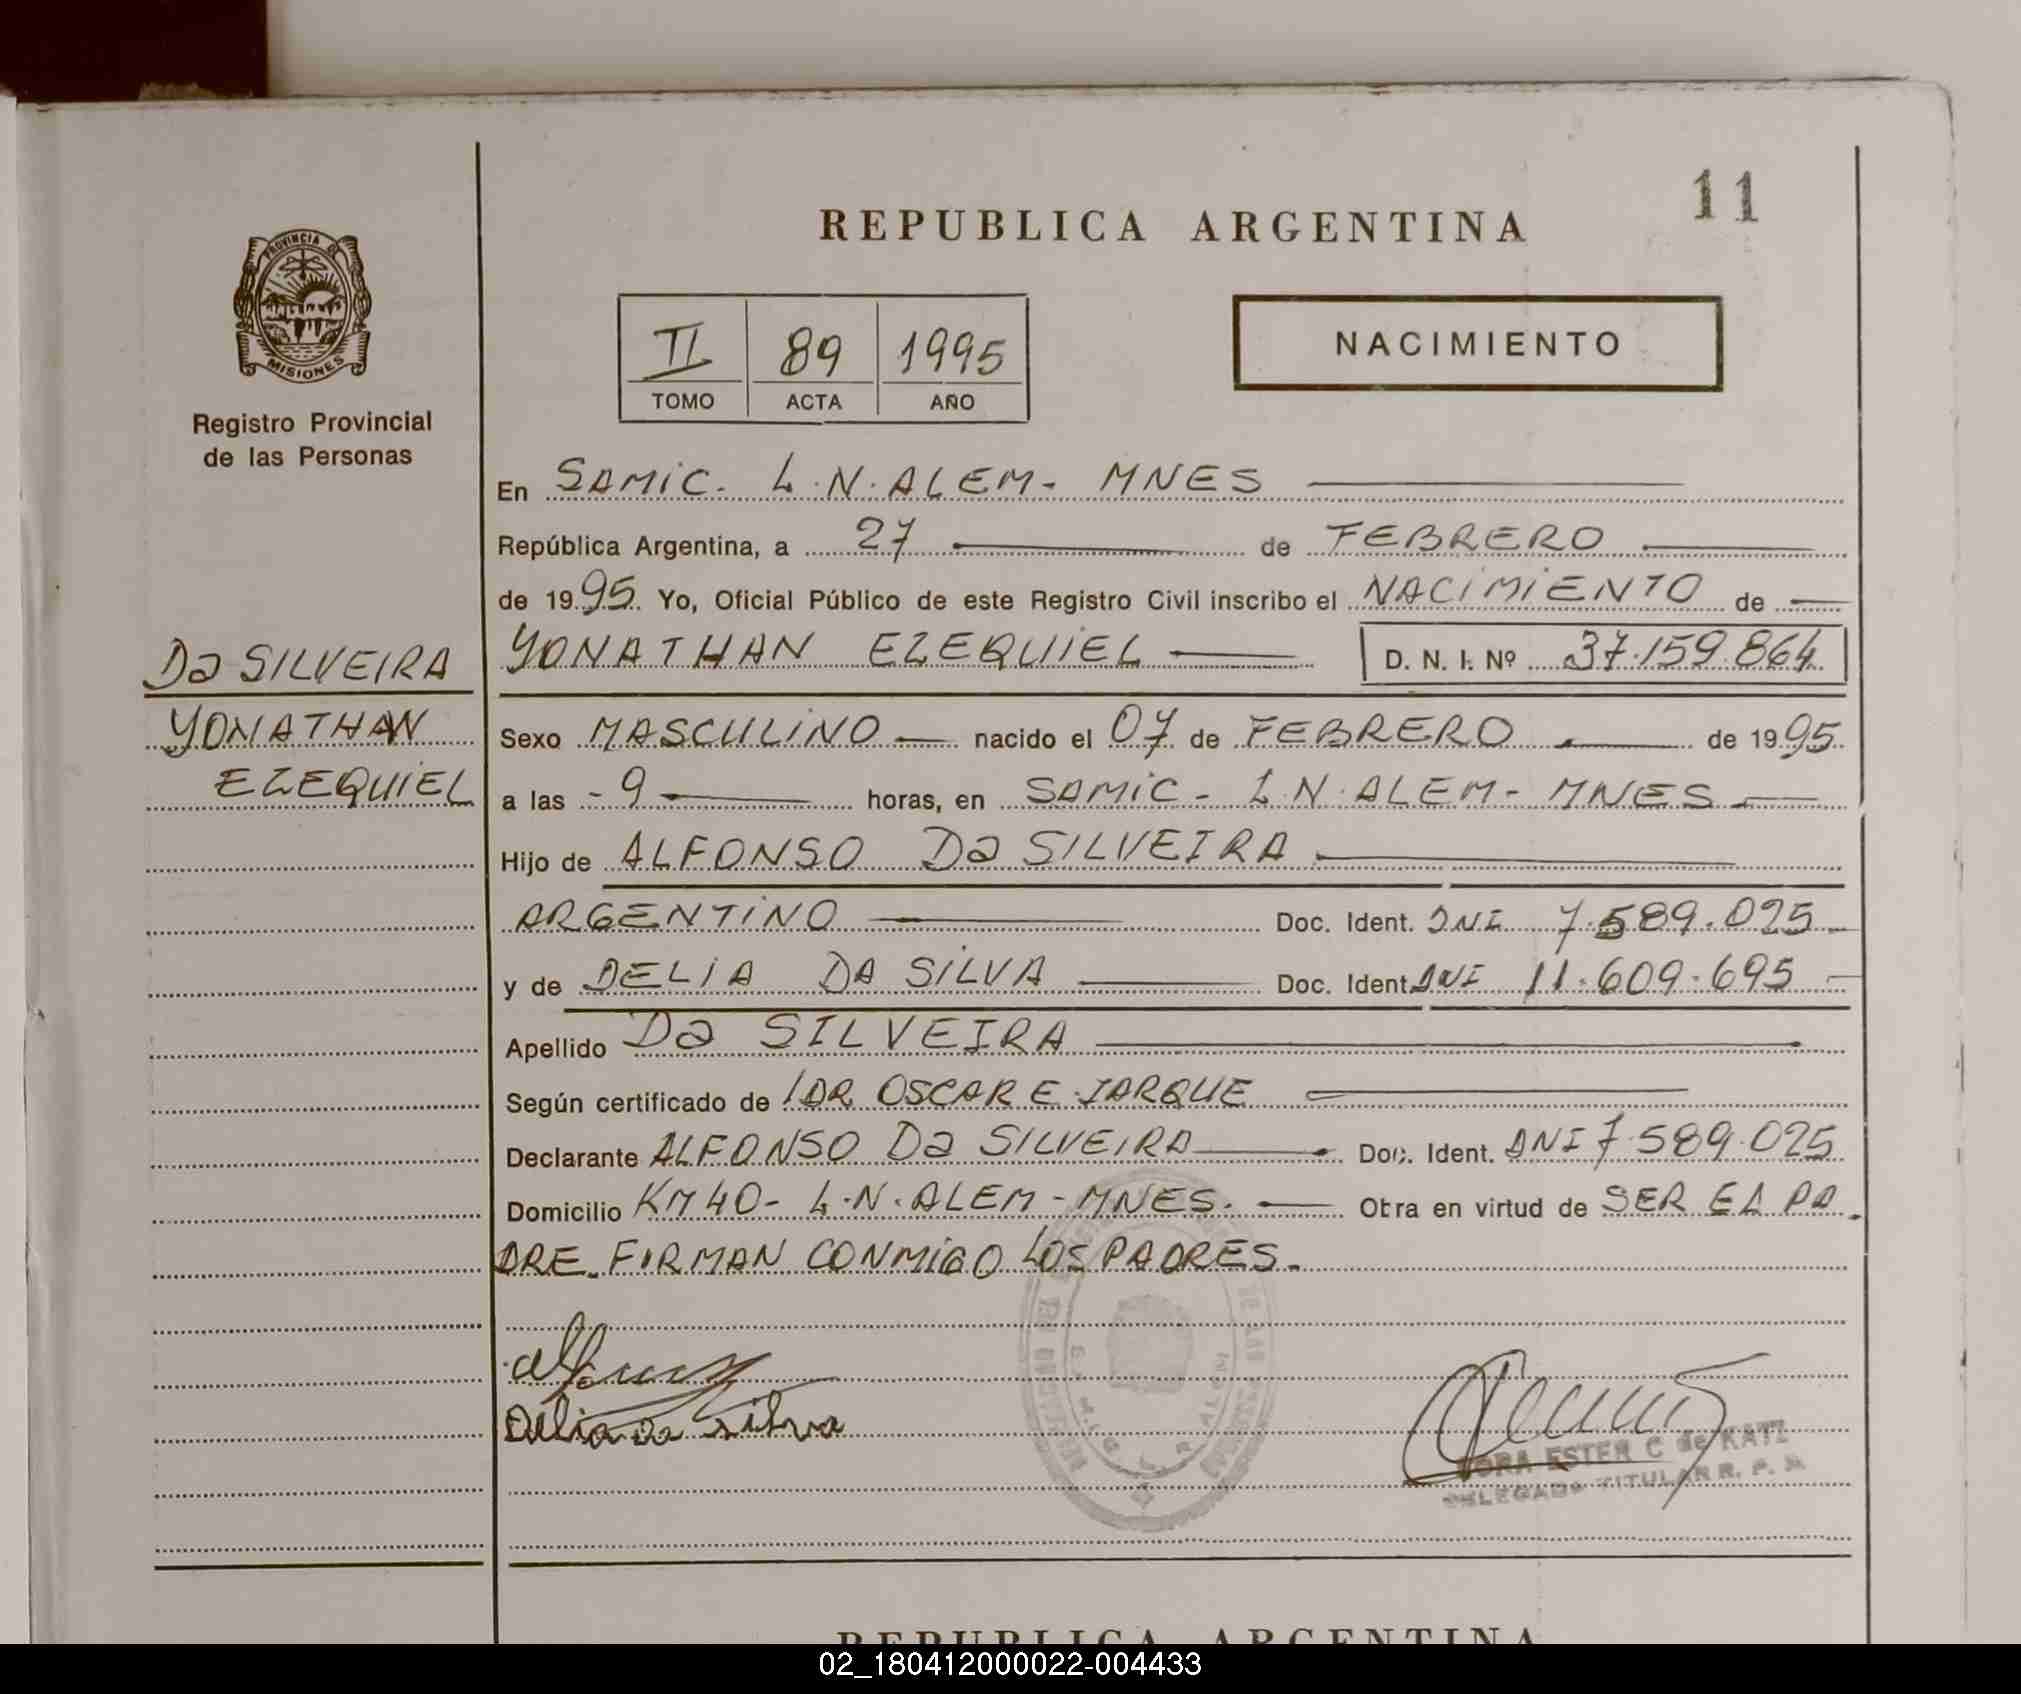 11
REPUBLICA ARGENTINA
PROVINCIA DE
MISIONES
Registro Provincial
de las Personas
II 89 1995
TOMO ACTA AÑO
NACIMIENTO
En SAMIC. L.N. ALEM- MNES
República Argentina, a 27 de FEBRERO
de 1995 Yo, Oficial Público de este Registro Civil inscribo el NACIMIENTO de
YONATHAN EZEQUIEL D. N. I. Nº 37.159.864
Da SILVEIRA
YONATHAN
EZEQUIEL
Sexo MASCULINO nacido el 07 de FEBRERO de 1995
a las -9 horas, en SAMIC- L.N. ALEM- MNES
Hijo de ALFONSO Da SILVEIRA
ARGENTINO Doc. Ident. DNI 7.589.025
y de DELIA DA SILVA Doc. Ident. DNI 11.609.695
Apellido Da SILVEIRA
Según certificado de DR OSCAR E. JARQUE
Declarante ALFONSO Da SILVEIRA Doc. Ident. DNI 7.589.025
Domicilio KM 40- L.N. ALEM-MNES. Obra en virtud de SER EL PA
DRE. FIRMAN CONMIGO LOS PADRES.
Delia da Silva
ESTER C de KATZ
DELEGADA TITULAR R. P.
REPUBLICA ARGENTINA
02_180412000022-004433